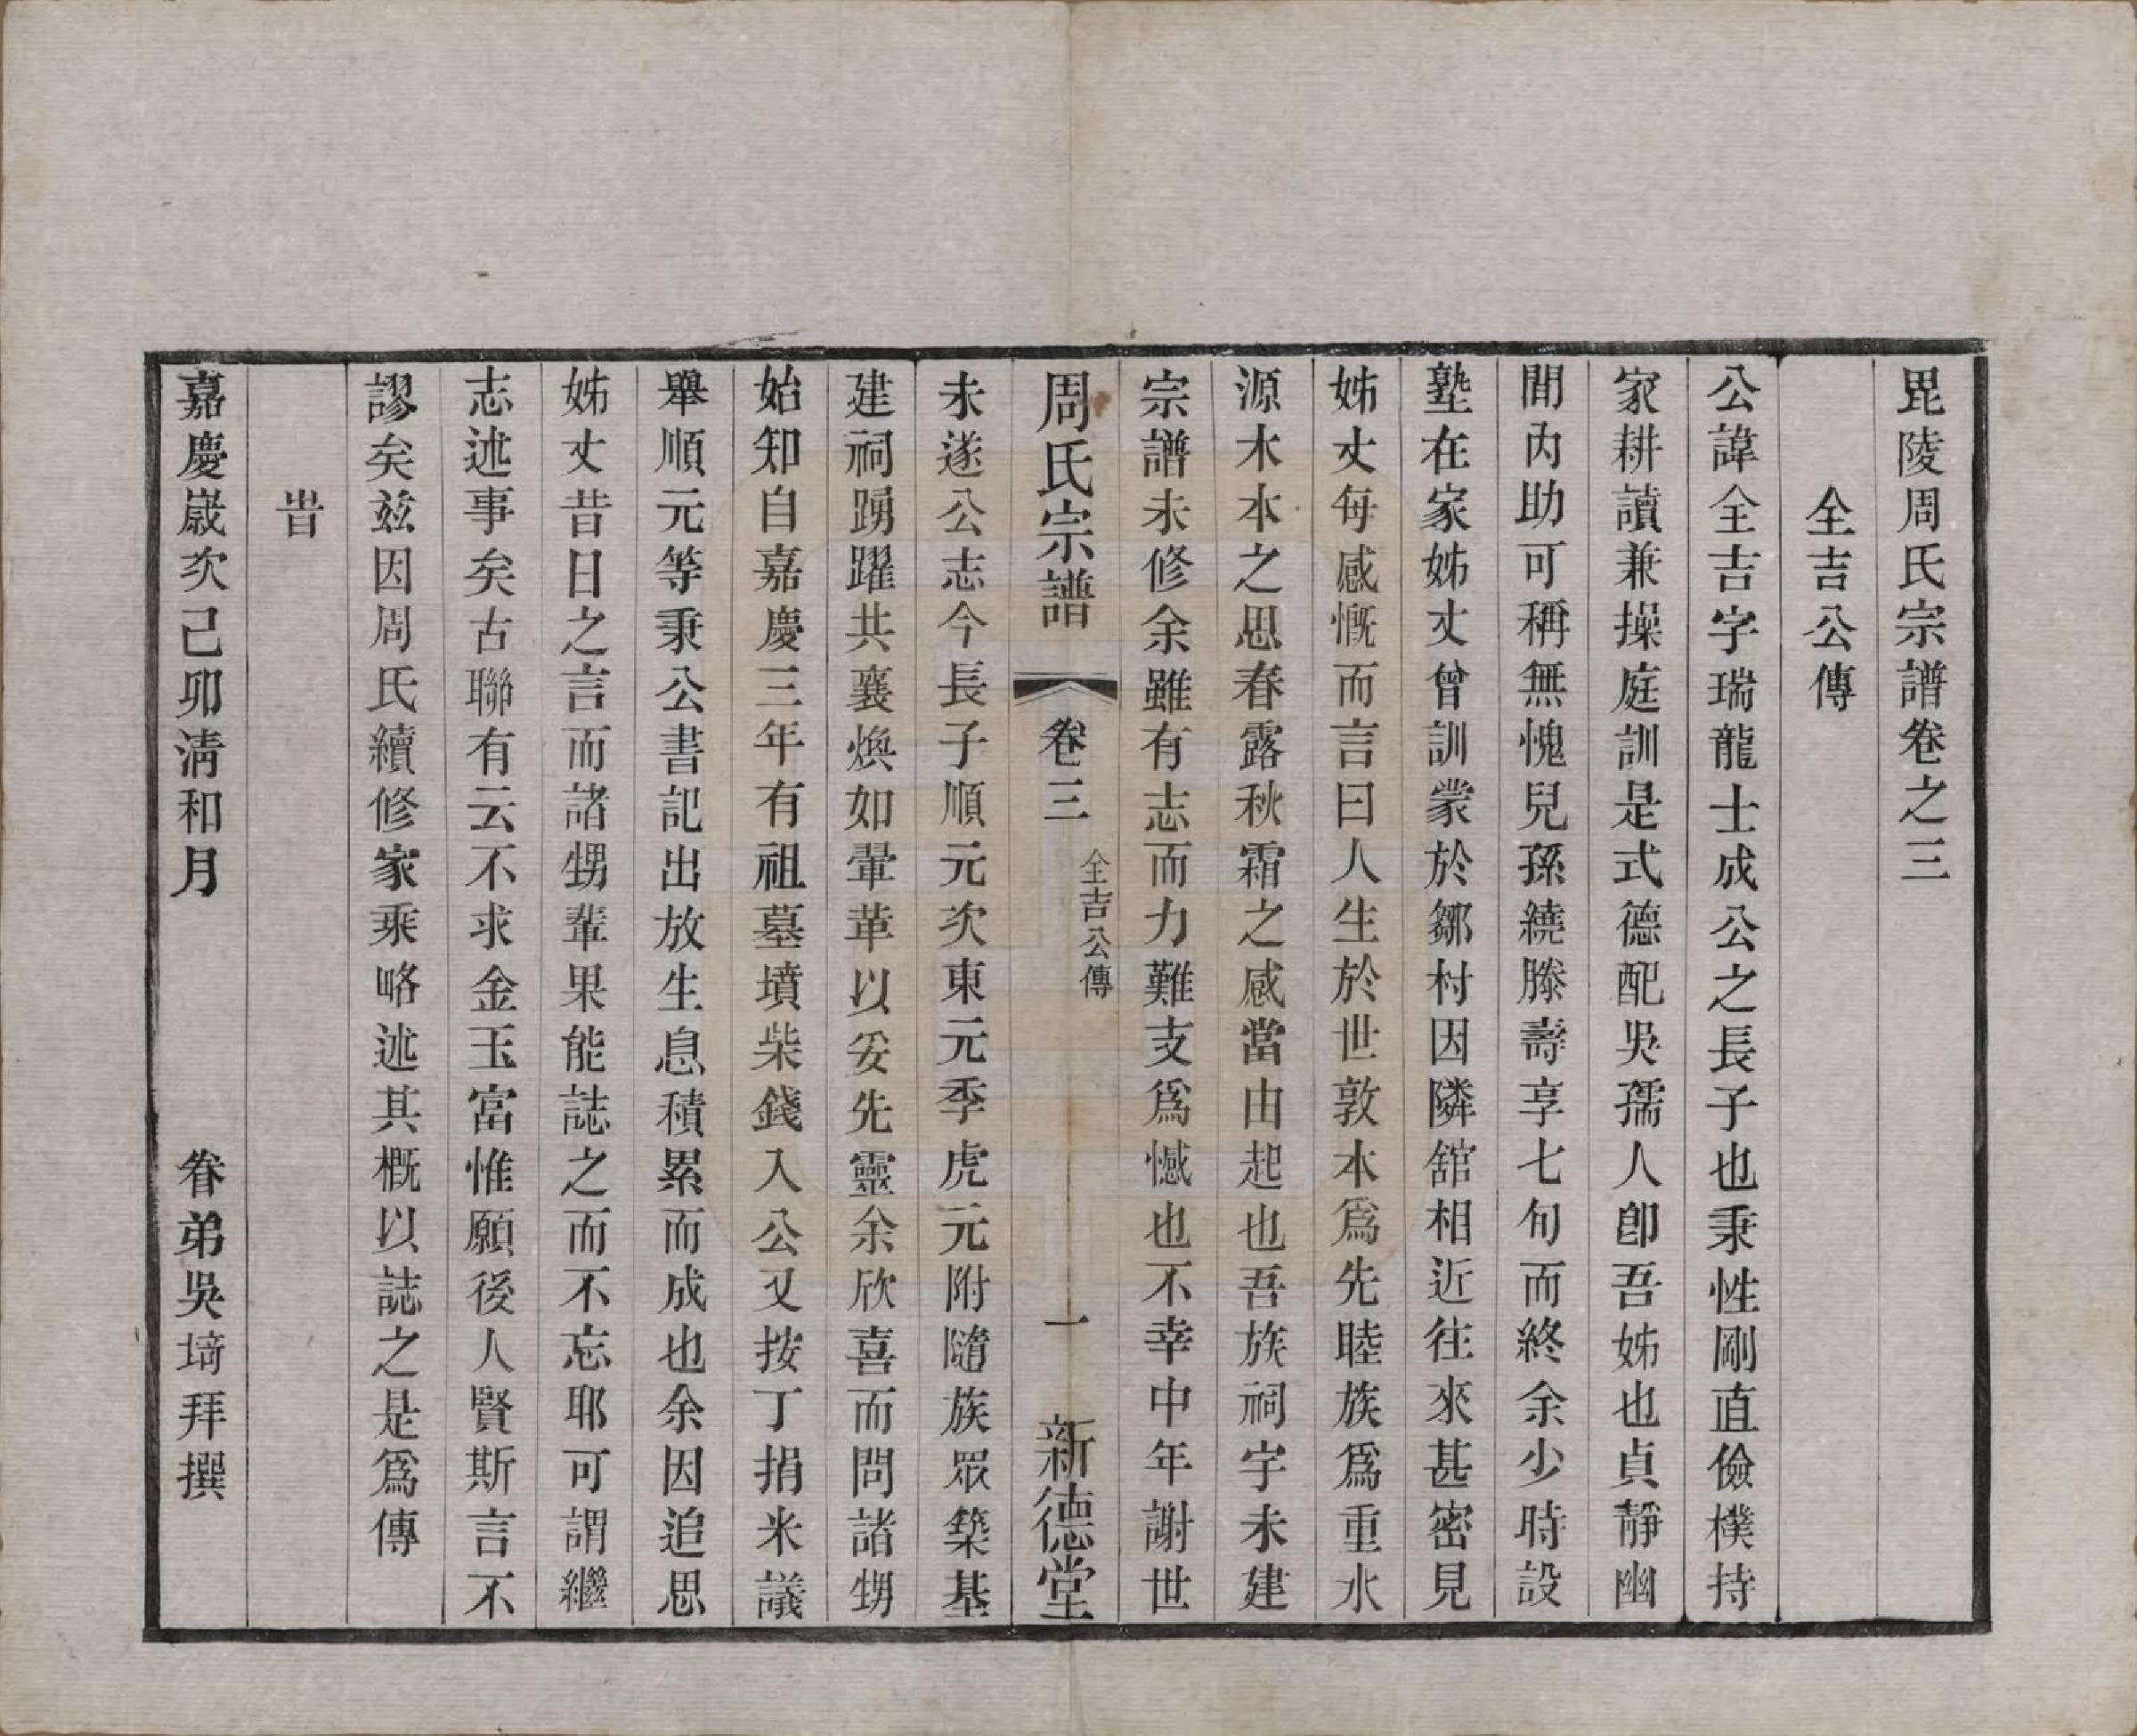 毘陵周氏宗譜卷之三
全吉公傳
公諱全吉字瑞龍士成公之長子也秉性剛直儉樸持
家耕讀兼操庭訓是式德配吳孺人卽吾姊也貞靜幽
閒內助可稱無愧兒孫繞膝壽享七旬而終余少時設
塾在家姊丈曾訓蒙於鄒村因隣舘相近往來甚密見
姊丈每感慨而言曰人生於世敦本爲先睦族爲重水
源木本之思春露秋霜之感當由起也吾族祠宇未建
宗譜未修余雖有志而力難支爲憾也不幸中年謝世
周氏宗譜 卷三 全吉公傳 一 新德堂
未遂公志今長子順元次東元季虎元附隨族眾築基
建祠踴躍共襄煥如翬革以妥先靈余欣喜而問諸甥
始知自嘉慶三年有祖墓墳柴錢入公又按丁捐米議
舉順元等秉公書記出放生息積累而成也余因追思
姊丈昔日之言而諸甥輩果能誌之而不忘耶可謂繼
志述事矣古聯有云不求金玉富惟願後人賢斯言不
謬矣茲因周氏續修家乘略述其概以誌之是爲傳
旹
嘉慶歲次己卯淸和月 眷弟吳𡺸拜撰